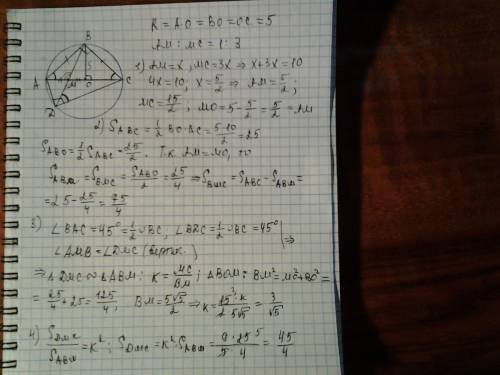 B
A
C
D
M
O
5
R = AO = BO = OC = 5
AM : MC = 1 : 3
1) AM = x, MC = 3x ⇒ x + 3x = 10
4x = 10; x = 5/2 ⇒ AM = 5/2;
MC = 15/2; MO = 5 - 5/2 = 5/2 = AM
2) S_ABC = 1/2 BO · AC = 5·10/2 = 25
S_ABO = 1/2 S_ABC = 25/2. Т.к. AM = MO, то
S_ABM = S_BMO = S_ABO/2 = 25/4 ⇒ S_BMC = S_ABC - S_ABM =
= 25 - 25/4 = 75/4
3) ∠BAC = 45° = 1/2 ∪BC, ∠BDC = 1/2 ∪BC = 45° | ⇒
∠AMB = ∠DMC (вертик.)
⇒ △DMC ∾ △ABM; K = MC/BM; △BOM: BM² = MO² + BO² =
= 25/4 + 25 = 125/4; BM = 5√5/2 ⇒ K = 15·2/2·5√5 = 3/√5
4) S_DMC/S_ABM = K²; S_DMC = K² · S_ABM = 9·25/5·4 = 45/4